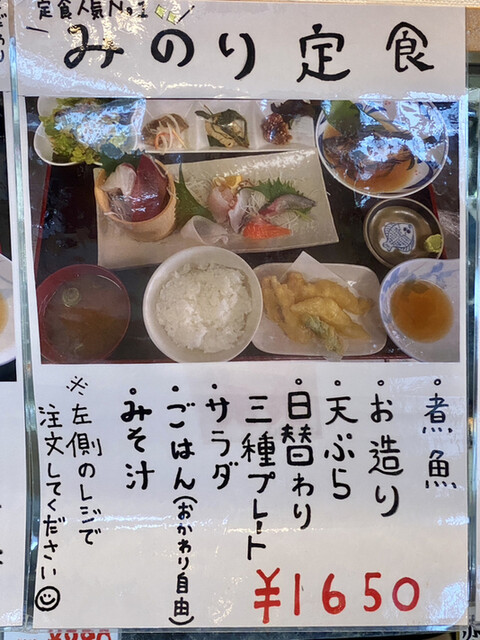 定食人気No.1
みのり定食
・煮魚
・お造り
・天ぷら
・日替わり
三種プレート
・サラダ
・ごはん(おかわり自由)
・みそ汁
※左側のレジで
注文してください
¥1650